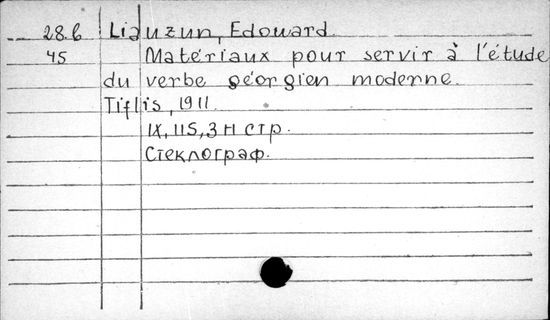 28.6 Liauzun, Edouard.
45 Matériaux pour servir à l'étude
du verbe géorgien moderne.
Tiflis, 1911.
IX, 115, 3 н стр.
Стеклограф.